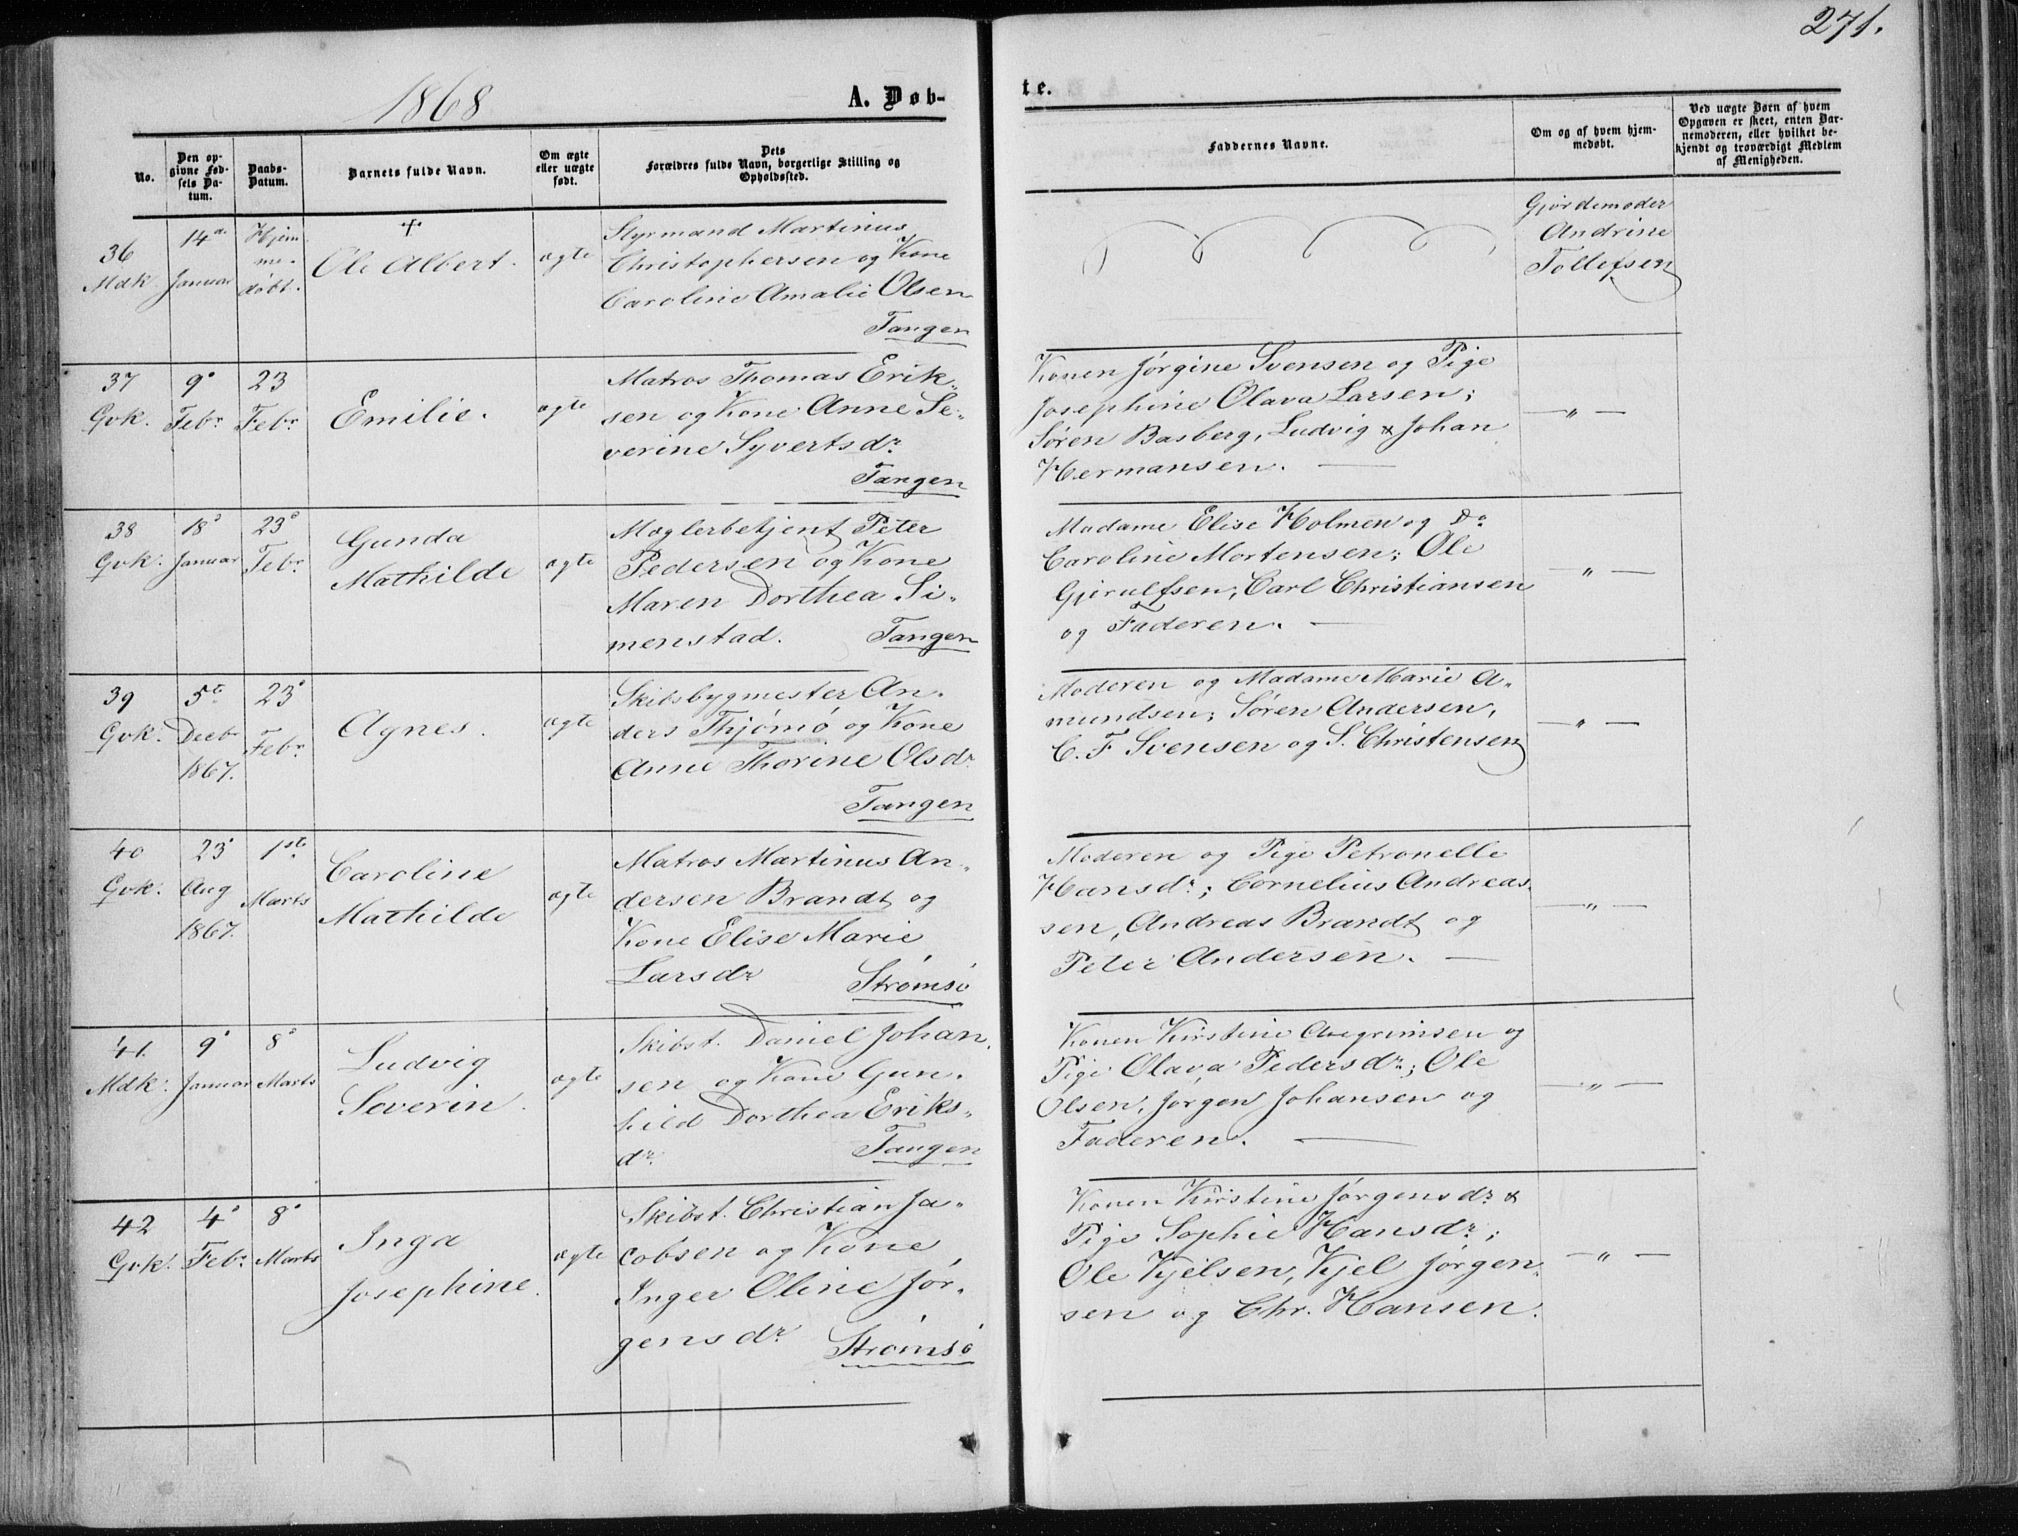 271.
1868
A. Døb-
te.
No.
Den op-
givne Fød-
sels Da-
tum.
Daabs-
Datum.
Barnets fulde Navn.
Om ægte
eller uægte
født.
Dets
Forældres fulde Navn, borgerlige Stilling og
Opholdssted.
Faddernes Navne.
Om og af hvem hjem-
medøbt.
Ved uægte Børn af hvem
Opgaven er skeet, enten Bar-
nemoderen, eller hvilket be-
kjendt og troværdigt Medlem
af Menigheden.
36
Mdk.
14de
Januar
Hjem
me-
døbt.
+
Ole Albert.
ægte
Styrmand Martinus
Christophersen og Kone
Caroline Amalie Olsen
Tangen
Gjordemoder
Andrine
Tollefsen
37
Qvk.
9de
Febr
23
Febr
Emilie.
ægte
Matros Thomas Erik-
sen og Kone Anne Se-
verine Syvertsdr
Tangen
Konen Jørgine Svensen og Pige
Josephine Olava Larsen;
Søren Basberg, Ludvig & Johan
Hermansen. —
— „ —
38
Qvk.
18d
Januar
23d
Febr
Gunda
Mathilde
ægte
Mæglerbetjent Peter
Pedersen og Kone
Maren Dorthea Si-
menstad. Tangen
Madame Elise Holmen og Do
Caroline Mortensen; Ole
Gjerulfsen, Carl Christiansen
og Faderen. —
— „ —
39
Qvk.
5te
Decbr
1867.
23d
Febr
Agnes.
ægte
Skibsbygmester An-
ders Thjømø og Kone
Anne Thorine Olsdr
Tangen
Moderen og Madame Marie A-
mundsen; Søren Andersen,
C. F Svensen og S. Christensen
— „ —
40
Qvk.
23d
Aug
1867.
1ste
Marts
Caroline
Mathilde
ægte
Matros Martinus An-
dersen Brandt og
Kone Elise Marie
Larsdr Strømsø
Moderen og Pige Petronelle
Hansdr; Cornelius Andreas-
sen, Andreas Brandt og
Peter Andersen. —
— „ —
41.
Mdk.
9d
Januar
8d
Marts
Ludvig
Severin.
ægte
Skibst. Daniel Johan-
sen og Kone Gun-
hild Dorthea Eriks-
dr. Tangen
Konen Kirstine Asegrimsen og
Pige Olava Pedersdr; Ole
Olsen, Jørgen Johansen og
Faderen. —
— „ —
42
Qvk.
4d
Febr
8d
Marts
Inga
Josephine.
ægte
Skibst. Christian Ja-
cobsen og Kone
Inger Oline Jør-
gensdr Strømsø
Konen Kirstine Jørgensdr &
Pige Sophie Hansdr;
Ole Kjelsen, Kjel Jørgen-
sen og Chr. Hansen.
— „ —